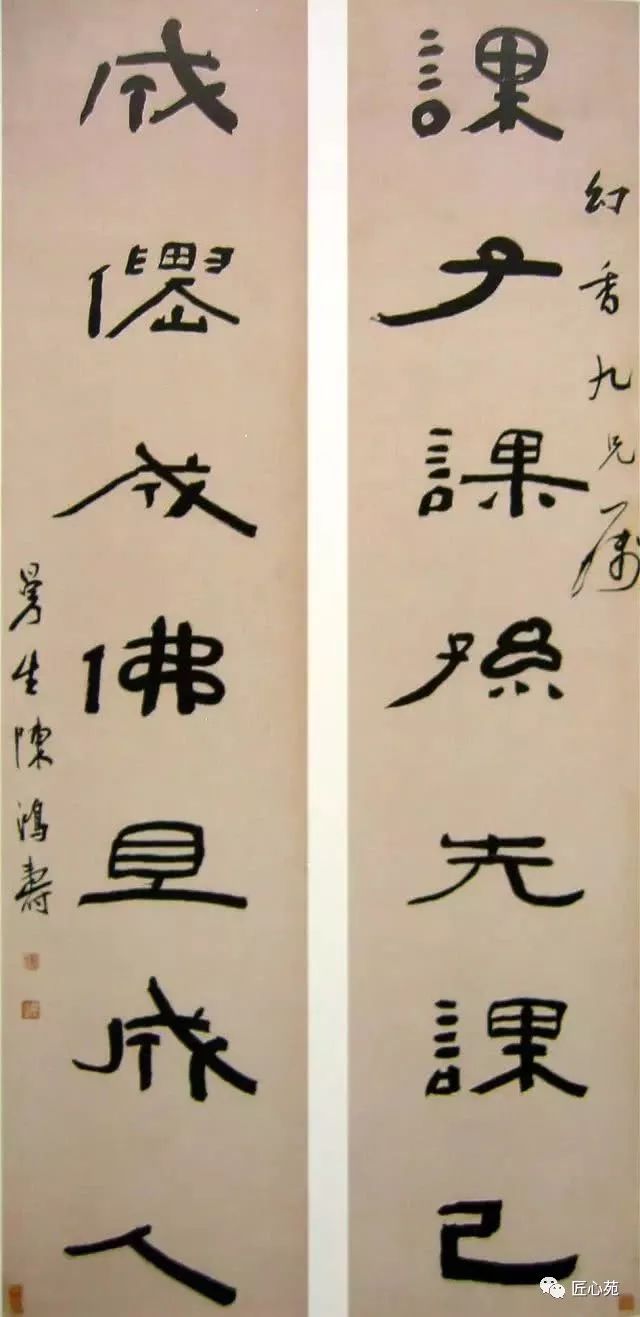 幻香九兄属
課子課孫先課己
成僊成佛且成人
曼生陳鴻壽
匠心苑